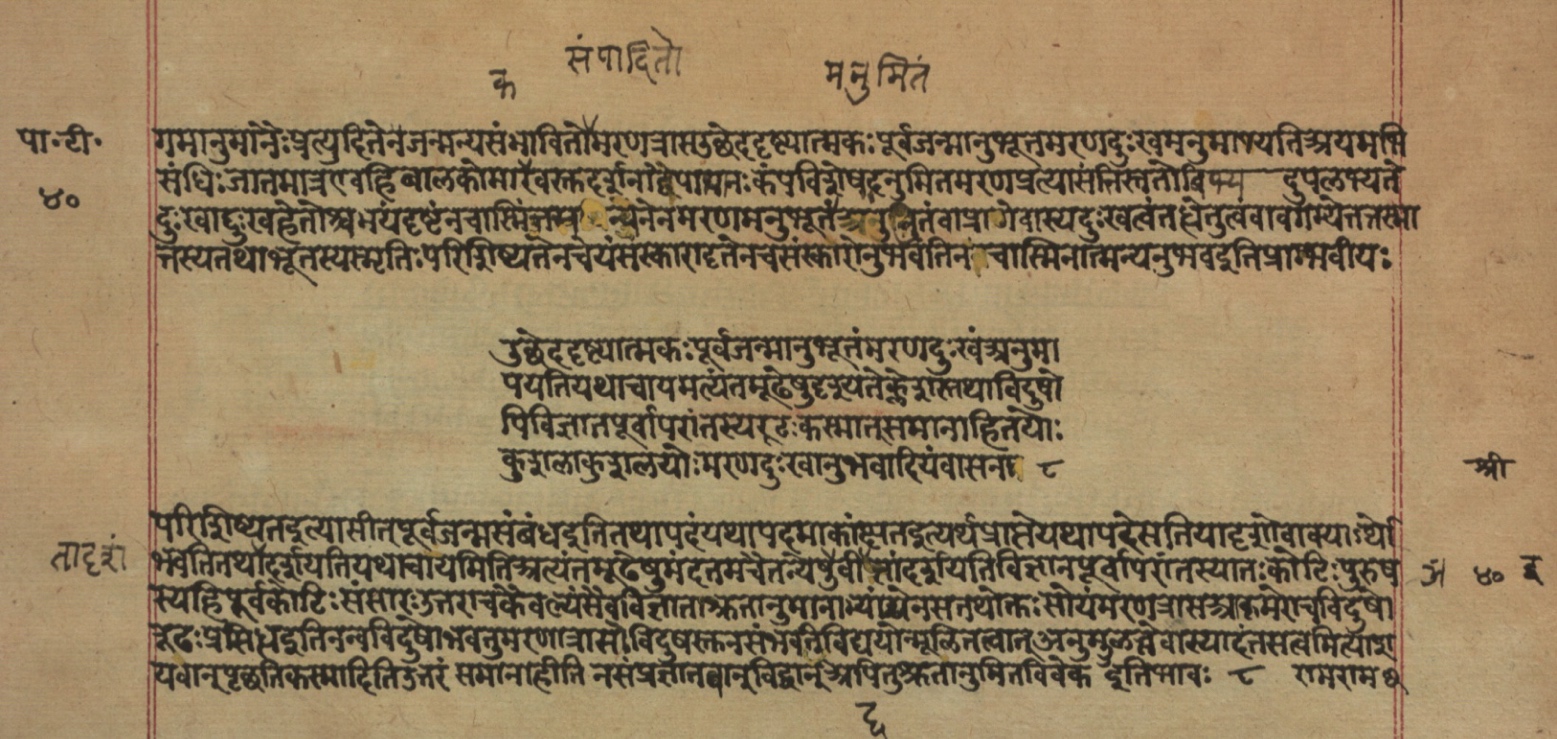 संपादितो
क
मनुमितं
पा॰टी॰
४०
गमानुमानैः प्रत्युदितेनजन्मन्यसंभावितोमरणत्रासउछेददृष्ट्यात्मकः पूर्वजन्मानुभूतमरणदुःखमनुमापयतिअयमभि
संधिः जातमात्रएवहिबालकोमारकवस्तुदर्शनाद्वेपमानः कंपविशेषादनुमितमरणप्रत्यासत्तिस्ततोबिभ्य दुपलभ्यते
दुःखाद्दुःखहेतोश्चभयंदृष्टंनचास्मिंजन्म न्यनेनमरणमनुभूतंअनुमितंवाप्रागेवास्यदुःखत्वंतद्धेतुत्वंवावगम्येततस्मा
त्तस्यतथाभूतस्यस्मृतिः परिशिष्यतेनचेयंसंस्कारादृतेनचसंस्कारोनुभवंविना चास्मिनात्मन्यनुभवइतिप्राग्भवीयः
उछेददृष्ट्यात्मकः पूर्वजन्मानुभूतंमरणदुःखंअनुमा
पयतियथाचायमत्यंतमूढेषुदृश्यतेक्लेशस्तथाविदुषो
पिविज्ञातपूर्वापरांतस्यरूढः कस्मात्समानाहितयोः
कुशलाकुशलयोः मरणदुःखानुभवादियंवासना ८
श्री
परिशिष्यतइत्यासीत्पूर्वजन्मसंबंधइतितथापदंयथापदमाकांक्षतइत्यर्थप्राप्तेयथापदेसतियादृशोवाक्यार्थो
तादृशं
भवतितथादर्शयतियथाचायमितिअत्यंतमूढेषुमंदतमचैतन्येषुवि तांदर्शयतिविज्ञानपूर्वापरांतस्यांतः कोटिः पुरुष
४०
स्यहिपूर्वकोटिः संसारः उत्तराचकैवल्यंसैवविज्ञाताश्रुतानुमानाभ्यांयेनसतथोक्तः सोयंमरणत्रासआकृमेराचविदुषो
रूढः प्रसिद्धइतिनन्वविदुषोभवतुमरणत्रासोविदुषस्तुनसंभवतिविद्ययोन्मूलितत्वात्अनुन्मूलनेवास्यात्यंतसत्वमित्याश
यवान्पृछतिकस्मादितिउत्तरं समानाहीति नसंप्रज्ञातवान्विद्वान्अपितुश्रुतानुमितविवेक इतिभावः ८ रामराम